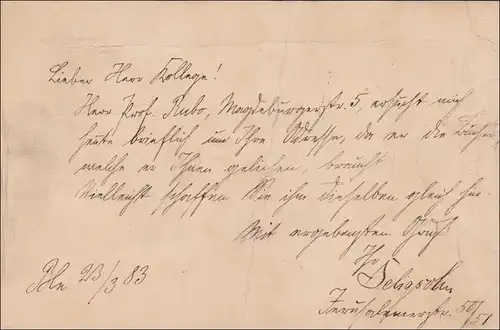 Lieber Herr Kollege!
Herr Prof. Rubo, Magdeburgerstr. 5, ersucht mich
heute brieflich um Ihre Adresse, da er die Bücher
welche er Ihnen geliehen, braucht
Vielleicht schaffen Sie ihm dieselben gleich hin.
Mit ergebenstem Gruß
Ihr
Seligsohn
Bln 23/3 83
Jerusalemerstr. 50/51